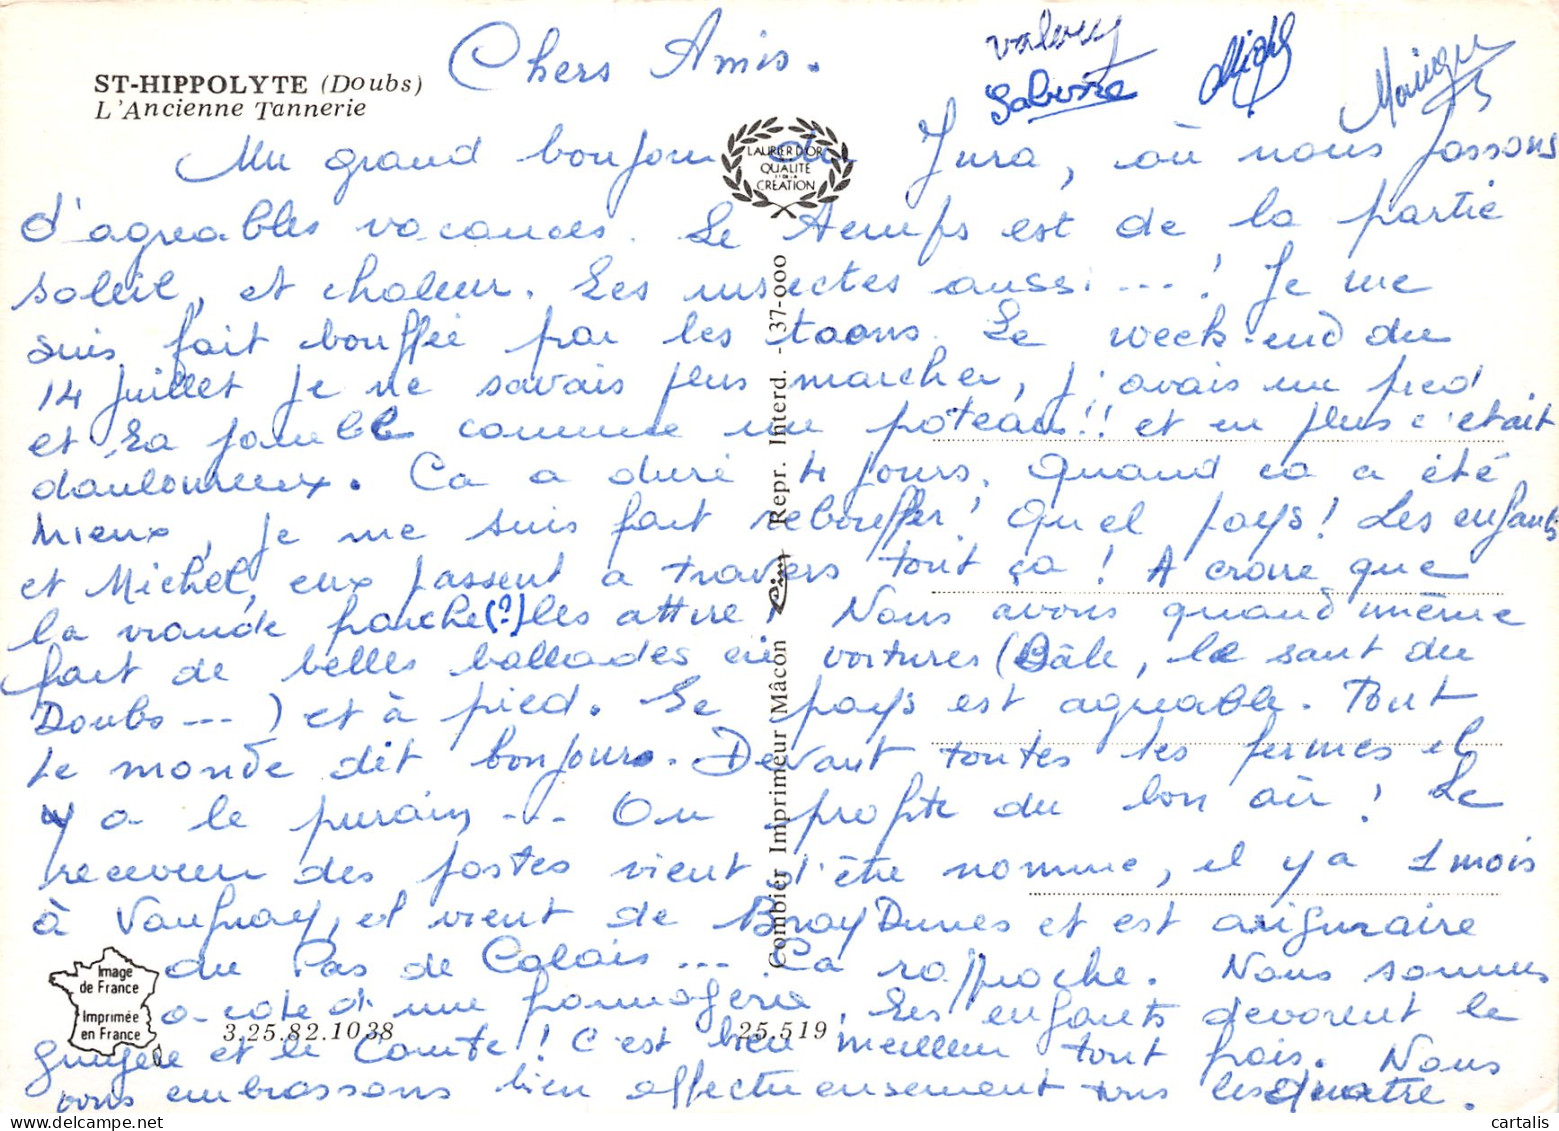 ST-HIPPOLYTE (Doubs)
L'Ancienne Tannerie
Chers Amis.
Valery
Sabine
Michel
Monique
LAURIER D'OR
QUALITÉ
ET DE LA
CRÉATION
Un grand bonjour du Jura, où nous passons
d'agreables vacances. Le temps est de la partie
soleil, et chaleur. Les insectes aussi --- ! Je me
suis fait bouffée par les taons. Le week-end du
14 juillet je ne savais plus marcher, j'avais un pied
et la jambe comme un poteau!! et en plus c'etait
douloureux. Ca a duré 4 jours. Quand ca a été
mieux, je me suis fait rebouffer! Quel pays! Les enfants
et Michel, eux passent a travers tout ça! A croire que
la viande fraiche(?) les attire! Nous avons quand même
fait de belles ballades en voitures (Bâle, le saut du
Doubs ---) et à pied. Le pays est agreable. Tout
le monde dit bonjour. Devant toutes les fermes il
y a le purain --- On profite du bon air! Le
receveur des postes vient d'être nomme, il y a 1 mois
à Vaufrey, il vient de Bray Dunes et est originaire
du Pas de Calais --- Ca rapproche. Nous sommes
a coté d'une fromagerie. Les enfants devorent le
gruyère et le Comté! C'est bien meilleur tout frais. Nous
vous embrassons bien affectueusement tous les quatre.
Image
de France
Imprimée
en France
3.25.82.1038
25.519
Combier Imprimeur Mâcon Cim Repr. Interd. - 37-000